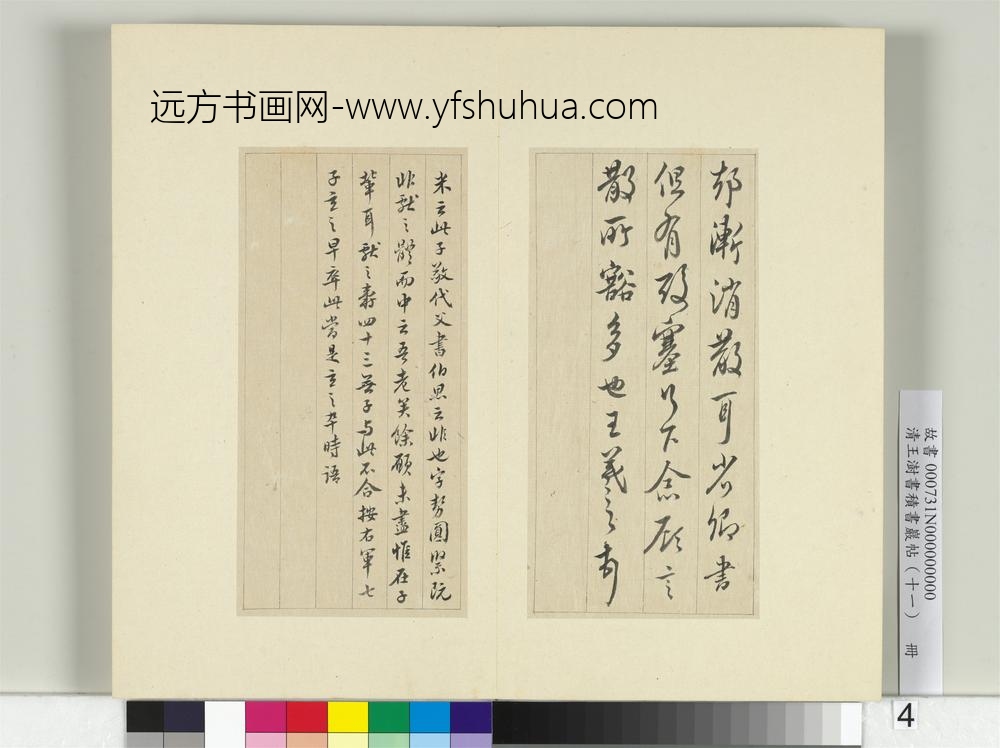 远方书画网-www.yfshuhua.com
却渐消散耳少卿书
但有致塞以下念顾言
散所豁多也王羲之
米云此子敬代父書伯思云非也字勢圓緊阮
非獻之體而中云吾老矣餘願未盡惟在子
輩耳獻之壽四十三無子與此不合按右軍七
子玄之早卒此當是玄之卒時語
故書 000731N000000000
清王澍書積書巖帖(十一) 冊
4